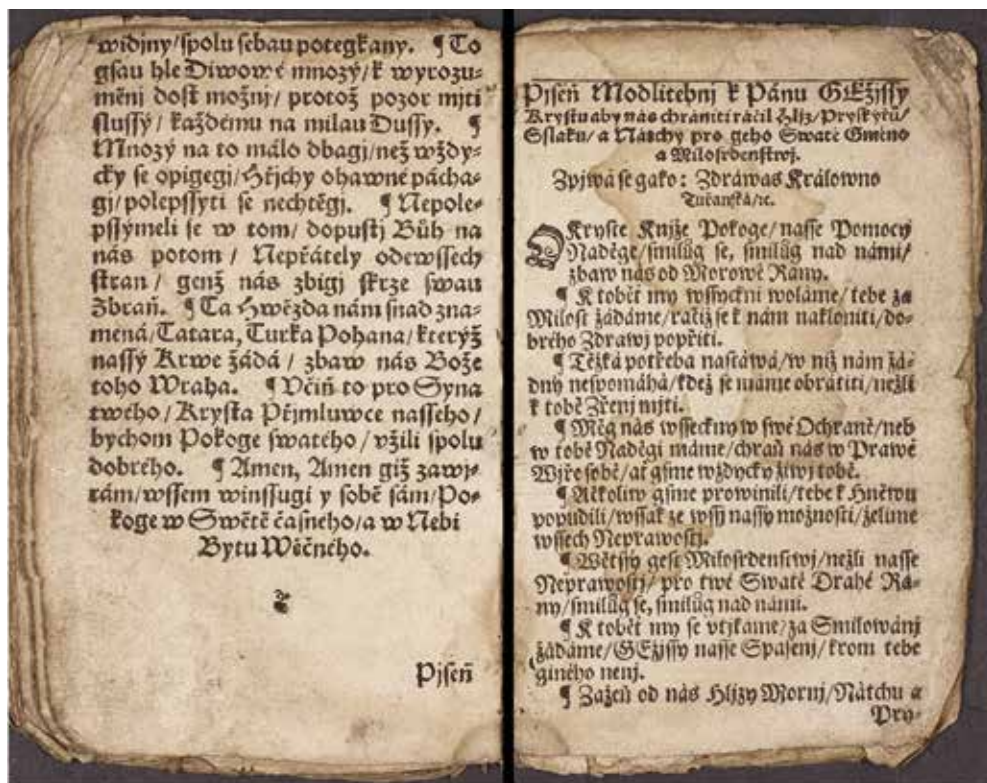 widjny/spolu sebau potegkany. ¶ To
gsau hle Diwowé mnozý/k wyrozu-
měnj dost možnj/ protož pozor mjti
slussý/ každému na milau Dussy. ¶
Mnozý na to málo dbagj/než wždy-
cky se opigegj/Hřjchy ohawné pácha-
gj/polepssyti se nechtěgj. ¶ Nepole-
pssýmeli se w tom/ dopustj Bůh na
nás potom / Nepřátely odewssech
stran / genž nás zbigj skrze swau
Zbraň. ¶ Ta Hwězda nám snad zna-
mená/Tatara, Turka Pohana/kterýž
nassý Krwe žádá / zbaw nás Bože
toho Wraha. ¶ Včiň to pro Syna
twého/Krysta Přjmluwce nasseho/
bychom Pokoge swatého/vžili spolu
dobrého. ¶ Amen, Amen giž zawj-
rám/wssem winssugi y sobě sám/Po-
koge w Swětě časného/a w Nebi
Bytu Wěčného.
Pjseň
Pjseň Modlitebnj k Pánu GEžjssy
Krystu aby nás chrániti ráčil Hljz/Pryskýřů/
Sslaku/a Nátchy pro geho Swaté Gméno
a Milosrdenstwj.
Zpjwá se gako: Zdráwas Králowno
Tuřanská/ꝛc.
OKryste Knjže Pokoge/nasse Pomocy
Naděge/smilůg se, smilůg nad námi/
zbaw nás od Morowé Rány.
¶ K tobět my wssyckni woláme/tebe za
Milost žádáme/račiž se k nám nakloniti/do-
brého Zdrawj popřjti.
¶ Těžká potřeba nastáwá/w njž nám žá-
dný nespomáhá/kdež se máme obrátiti/nežli
k tobě Zřenj mjti.
¶ Měg nás wssecky w swé Ochraně/neb
w tobě Naděgi máme/chraň nás w Prawé
Wjře sobě/ať gsme wždycky žiwj tobě.
¶ Ačkoliw gsme prowinili/tebe k Hněwu
popudili/wssak ze wsý nassý možnosti/željme
wssech Neprawostj.
¶ Wětssý gest Milosrdenstwj/nežli nasse
Neprawostj/ pro twé Swaté Drahé Rá-
ny/smilůg se, smilůg nad námi.
¶ K tobět my se vtjkáme/za Smilowánj
žádáme/GEžjssy nasse Spasenj/krom tebe
giného nenj.
¶ Zažeň od nás Hljzy Mornj/Nátchu a
Pry-